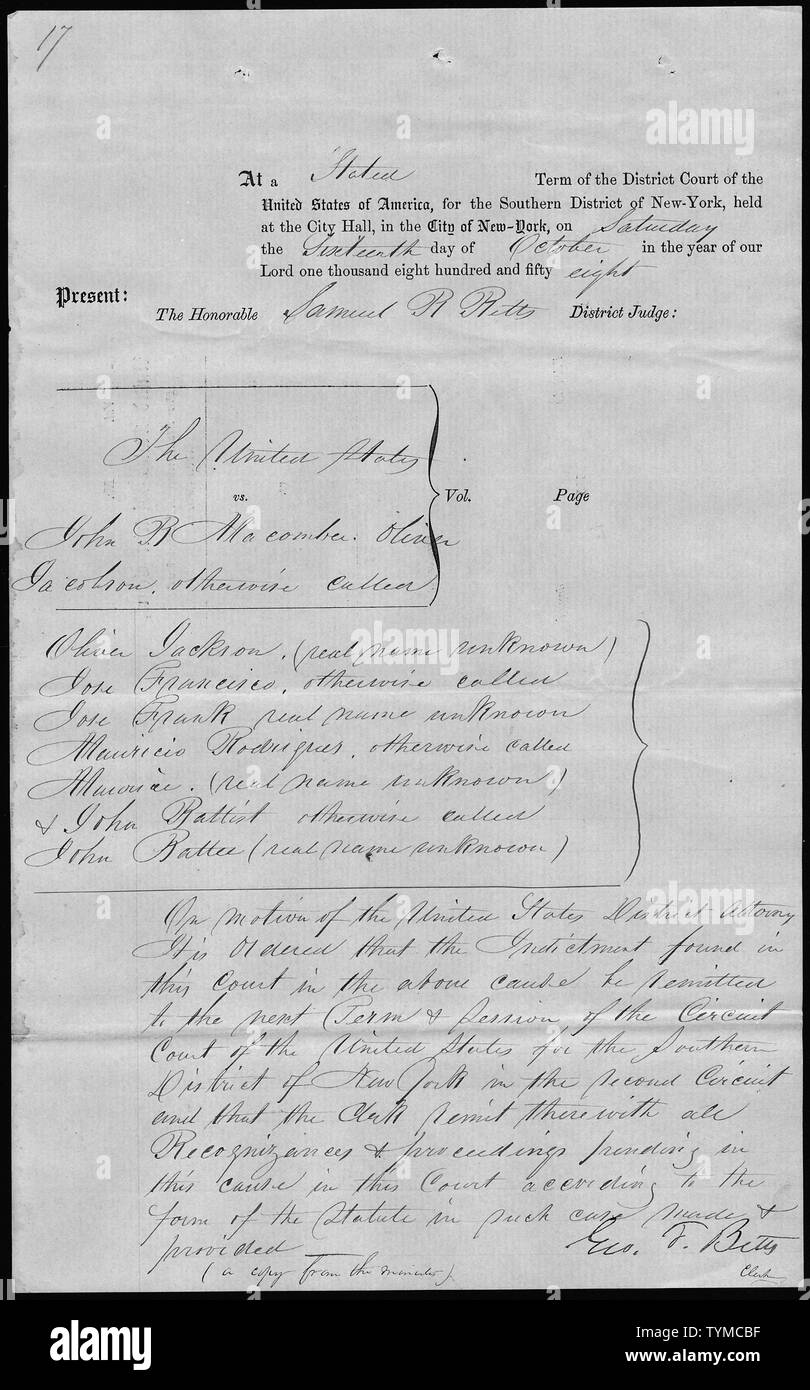 17
At a Stated Term of the District Court of the
United States of America, for the Southern District of New-York, held
at the City Hall, in the City of New-York, on Saturday
the Sixteenth day of October in the year of our
Lord one thousand eight hundred and fifty eight
Present:
The Honorable Samuel R Betts District Judge:
The United States
vs. Vol. Page
John B Macomber. Oliver
Jacobson. otherwise called
Oliver Jackson. (real name unknown)
Jose Francisco. otherwise called
Jose Frank real name unknown
Mauricio Rodrigues. otherwise called
Maurice. (real name unknown)
& John Battist otherwise called
John Battee (real name unknown)
On motion of the United States District Attorny
It is Ordered that the Indictment found in
this Court in the above cause be remitted
to the next Term & session of the Circuit
Court of the United States for the Southern
District of New York in the second Circuit
and that the Clerk remit therewith all
Recognizances & proceedings pending in
this cause in this Court according to the
form of the Statute in such case made &
provided
Geo. F. Betts
Clerk
(a copy from the minutes).
alamy
Image ID: TYMCBF
www.alamy.com